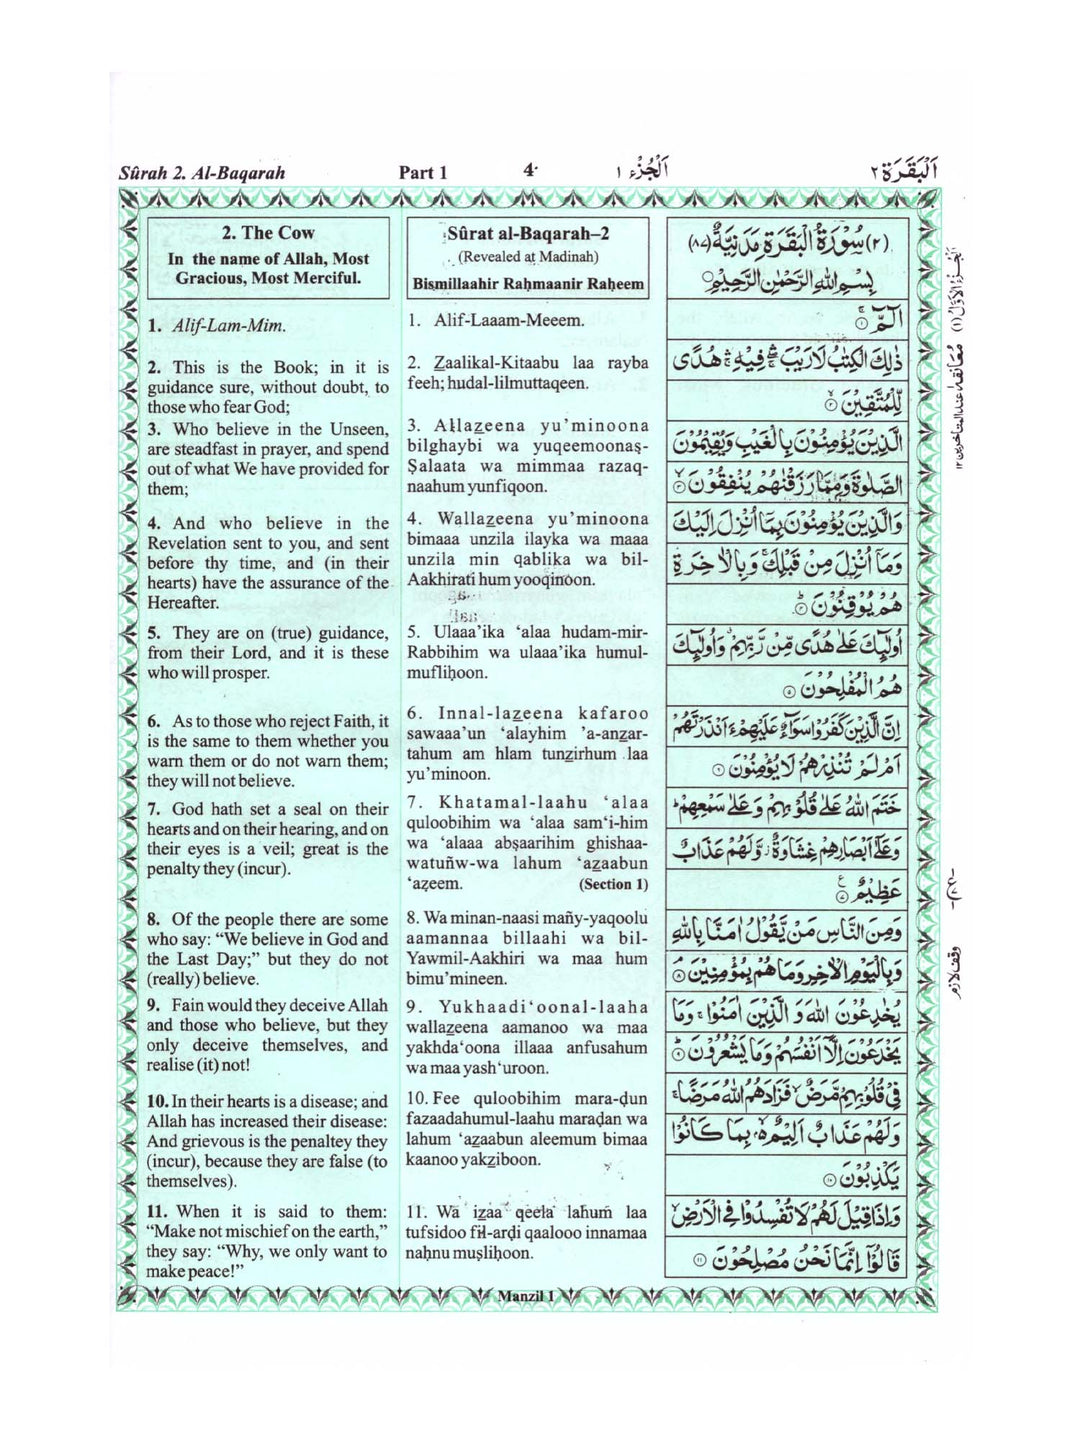 Sûrah 2. Al-Baqarah
Part 1
4
اَلْجُزْء ١
اَلْبَقَرَة ٢
2. The Cow
In the name of Allah, Most
Gracious, Most Merciful.
1. Alif-Lam-Mim.
2. This is the Book; in it is
guidance sure, without doubt, to
those who fear God;
3. Who believe in the Unseen,
are steadfast in prayer, and spend
out of what We have provided for
them;
4. And who believe in the
Revelation sent to you, and sent
before thy time, and (in their
hearts) have the assurance of the
Hereafter.
5. They are on (true) guidance,
from their Lord, and it is these
who will prosper.
6. As to those who reject Faith, it
is the same to them whether you
warn them or do not warn them;
they will not believe.
7. God hath set a seal on their
hearts and on their hearing, and on
their eyes is a veil; great is the
penalty they (incur).
8. Of the people there are some
who say: “We believe in God and
the Last Day;” but they do not
(really) believe.
9. Fain would they deceive Allah
and those who believe, but they
only deceive themselves, and
realise (it) not!
10. In their hearts is a disease; and
Allah has increased their disease:
And grievous is the penaltey they
(incur), because they are false (to
themselves).
11. When it is said to them:
“Make not mischief on the earth,”
they say: “Why, we only want to
make peace!”
Sûrat al-Baqarah–2
(Revealed at Madinah)
Bismillaahir Raḥmaanir Raḥeem
1. Alif-Laaam-Meeem.
2. Zaalikal-Kitaabu laa rayba
feeh; hudal-lilmuttaqeen.
3. Allazeena yu’minoona
bilghaybi wa yuqeemoonaṣ-
Ṣalaata wa mimmaa razaq-
naahum yunfiqoon.
4. Wallazeena yu’minoona
bimaaa unzila ilayka wa maaa
unzila min qablika wa bil-
Aakhirati hum yooqinoon.
5. Ulaaa’ika ‘alaa hudam-mir-
Rabbihim wa ulaaa’ika humul-
mufliḥoon.
6. Innal-lazeena kafaroo
sawaaa’un ‘alayhim ’a-anzar-
tahum am hlam tunzirhum laa
yu’minoon.
7. Khatamal-laahu ‘alaa
quloobihim wa ‘alaa sam‘i-him
wa ‘alaaa abṣaarihim ghishaa-
watuñw-wa lahum ‘azaabun
‘aẓeem. (Section 1)
8. Wa minan-naasi mañy-yaqoolu
aamannaa billaahi wa bil-
Yawmil-Aakhiri wa maa hum
bimu’mineen.
9. Yukhaadi‘oonal-laaha
wallazeena aamanoo wa maa
yakhda‘oona illaaa anfusahum
wa maa yash‘uroon.
10. Fee quloobihim mara-ḍun
fazaadahumul-laahu maraḍan wa
lahum ‘azaabun aleemum bimaa
kaanoo yakziboon.
11. Wa izaa qeela lahum laa
tufsidoo fil-arḍi qaalooo innamaa
naḥnu muṣliḥoon.
(٢) سُوْرَةُ الْبَقَرَةِ مَدَنِيَّةٌ (٨٧)
بِسْمِ اللهِ الرَّحْمٰنِ الرَّحِيْمِ
الٓمّٓ ۚ ١
ذٰلِكَ الْكِتٰبُ لَا رَيْبَ ۛ فِيْهِ ۛ هُدًى
لِّلْمُتَّقِيْنَ ۙ ٢
الَّذِيْنَ يُؤْمِنُوْنَ بِالْغَيْبِ وَيُقِيْمُوْنَ
الصَّلٰوةَ وَمِمَّا رَزَقْنٰهُمْ يُنْفِقُوْنَ ۙ ٣
وَالَّذِيْنَ يُؤْمِنُوْنَ بِمَآ اُنْزِلَ اِلَيْكَ
وَمَآ اُنْزِلَ مِنْ قَبْلِكَ ۚ وَبِالْاٰخِرَةِ
هُمْ يُوْقِنُوْنَ ؕ ٤
اُولٰٓئِكَ عَلٰى هُدًى مِّنْ رَّبِّهِمْ ۗ وَاُولٰٓئِكَ
هُمُ الْمُفْلِحُوْنَ ٥
اِنَّ الَّذِيْنَ كَفَرُوْا سَوَآءٌ عَلَيْهِمْ ءَاَنْذَرْتَهُمْ
اَمْ لَمْ تُنْذِرْهُمْ لَا يُؤْمِنُوْنَ ٦
خَتَمَ اللهُ عَلٰى قُلُوْبِهِمْ وَعَلٰى سَمْعِهِمْ ؕ
وَعَلٰٓى اَبْصَارِهِمْ غِشَاوَةٌ ؗ وَّلَهُمْ عَذَابٌ
عَظِيْمٌ ع ٧
وَمِنَ النَّاسِ مَنْ يَّقُوْلُ اٰمَنَّا بِاللهِ
وَبِالْيَوْمِ الْاٰخِرِ وَمَا هُمْ بِمُؤْمِنِيْنَ ۘ ٨
يُخٰدِعُوْنَ اللهَ وَالَّذِيْنَ اٰمَنُوْا ۚ وَمَا
يَخْدَعُوْنَ اِلَّآ اَنْفُسَهُمْ وَمَا يَشْعُرُوْنَ ؕ ٩
فِيْ قُلُوْبِهِمْ مَّرَضٌ ۙ فَزَادَهُمُ اللهُ مَرَضًا ۚ
وَلَهُمْ عَذَابٌ اَلِيْمٌ ۢ بِمَا كَانُوْا
يَكْذِبُوْنَ ١٠
وَاِذَا قِيْلَ لَهُمْ لَا تُفْسِدُوْا فِى الْاَرْضِ ۙ
قَالُوْٓا اِنَّمَا نَحْنُ مُصْلِحُوْنَ ١١
وقف لازم
Manzil 1